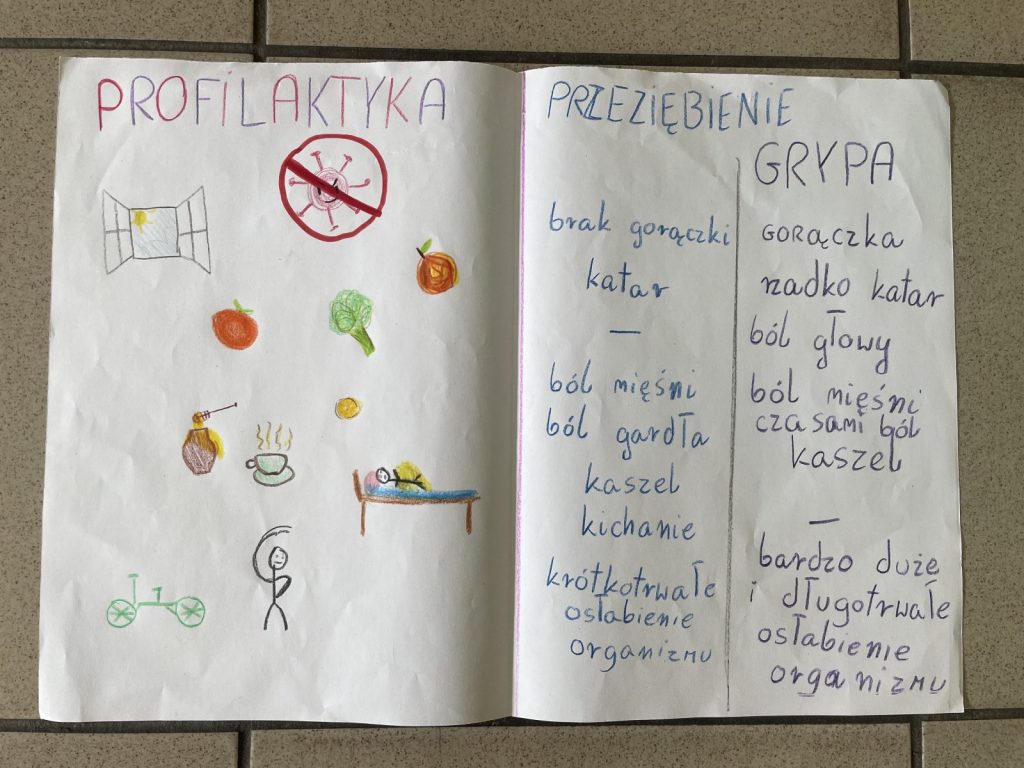 PROFILAKTYKA
PRZEZIĘBIENIE
brak gorączki
katar
—
ból mięśni
ból gardła
kaszel
kichanie
krótkotrwałe
osłabienie
organizmu
GRYPA
GORĄCZKA
rzadko katar
ból głowy
ból mięśni
czasami ból
kaszel
—
bardzo duże
i długotrwałe
osłabienie
organizmu